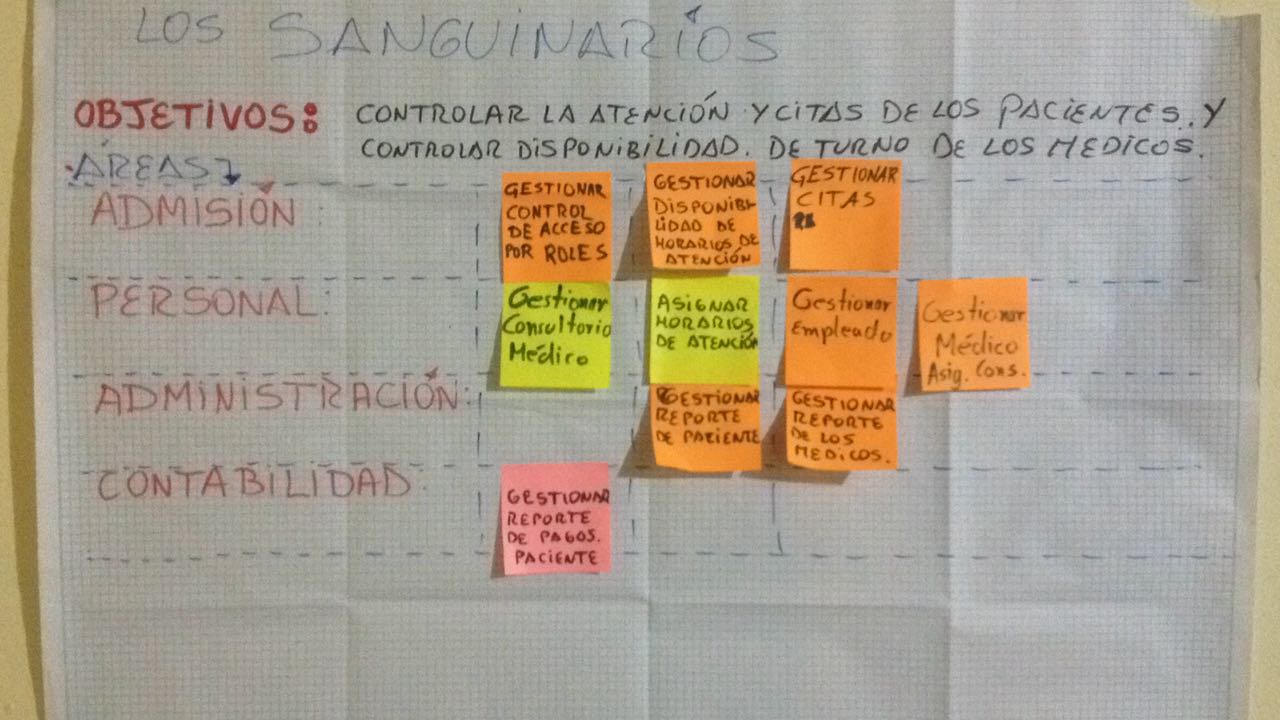 LOS SANGUINARIOS
OBJETIVOS: CONTROLAR LA ATENCIÓN Y CITAS DE LOS PACIENTES. Y
CONTROLAR DISPONIBILIDAD. DE TURNO DE LOS MEDICOS.
ÁREAS
ADMISIÓN:
GESTIONAR
CONTROL
DE ACCESO
POR ROLES
GESTIONAR
DISPONIBI-
LIDAD DE
HORARIOS DE
ATENCIÓN
GESTIONAR
CITAS
PERSONAL:
Gestionar
Consultorio
Médico
ASIGNAR
HORARIOS
DE ATENCIÓN
Gestionar
Empleado
Gestionar
Médico
Asig. Cons.
ADMINISTRACIÓN:
GESTIONAR
REPORTE
DE PACIENTE
GESTIONAR
REPORTE
DE LOS
MEDICOS.
CONTABILIDAD:
GESTIONAR
REPORTE
DE PAGOS.
PACIENTE